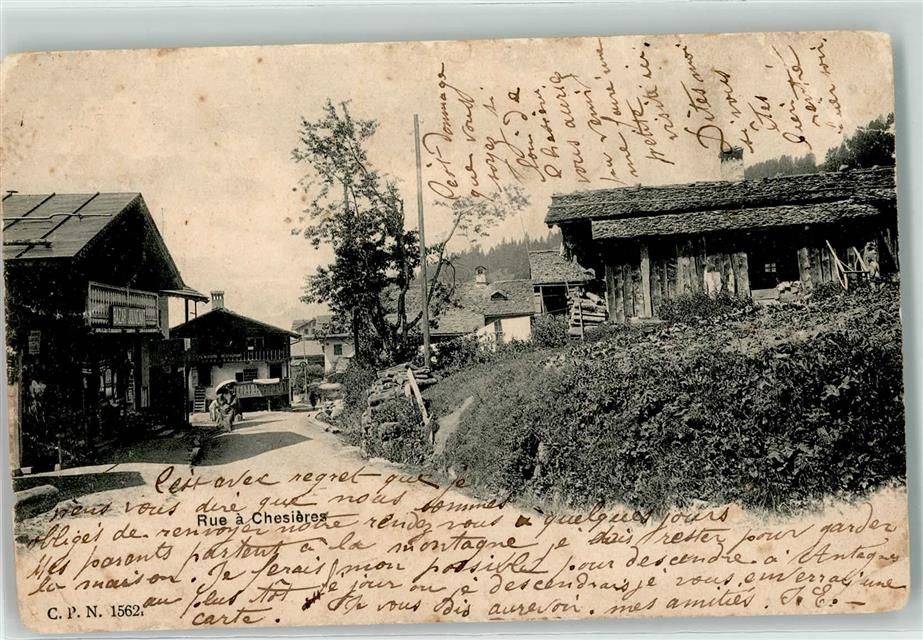 C'est dommage
que vous
soyez si
Chesières
vous auriez
pu faire
une
petite
visite
Dites moi
si vous
C'est avec regret que je
viens vous dire que nous sommes
obligés de renvoyer notre rendez vous à quelques jours
Mes parents partent à la montagne je dois rester pour garder
la maison. Je ferais mon possible pour descendre à Antagne
au plus tôt le jour ou je descendrais je vous enverrai une
carte. Je vous dis aurevoir. mes amitiés. J. E. -
Rue à Chesières
C. P. N. 1562.